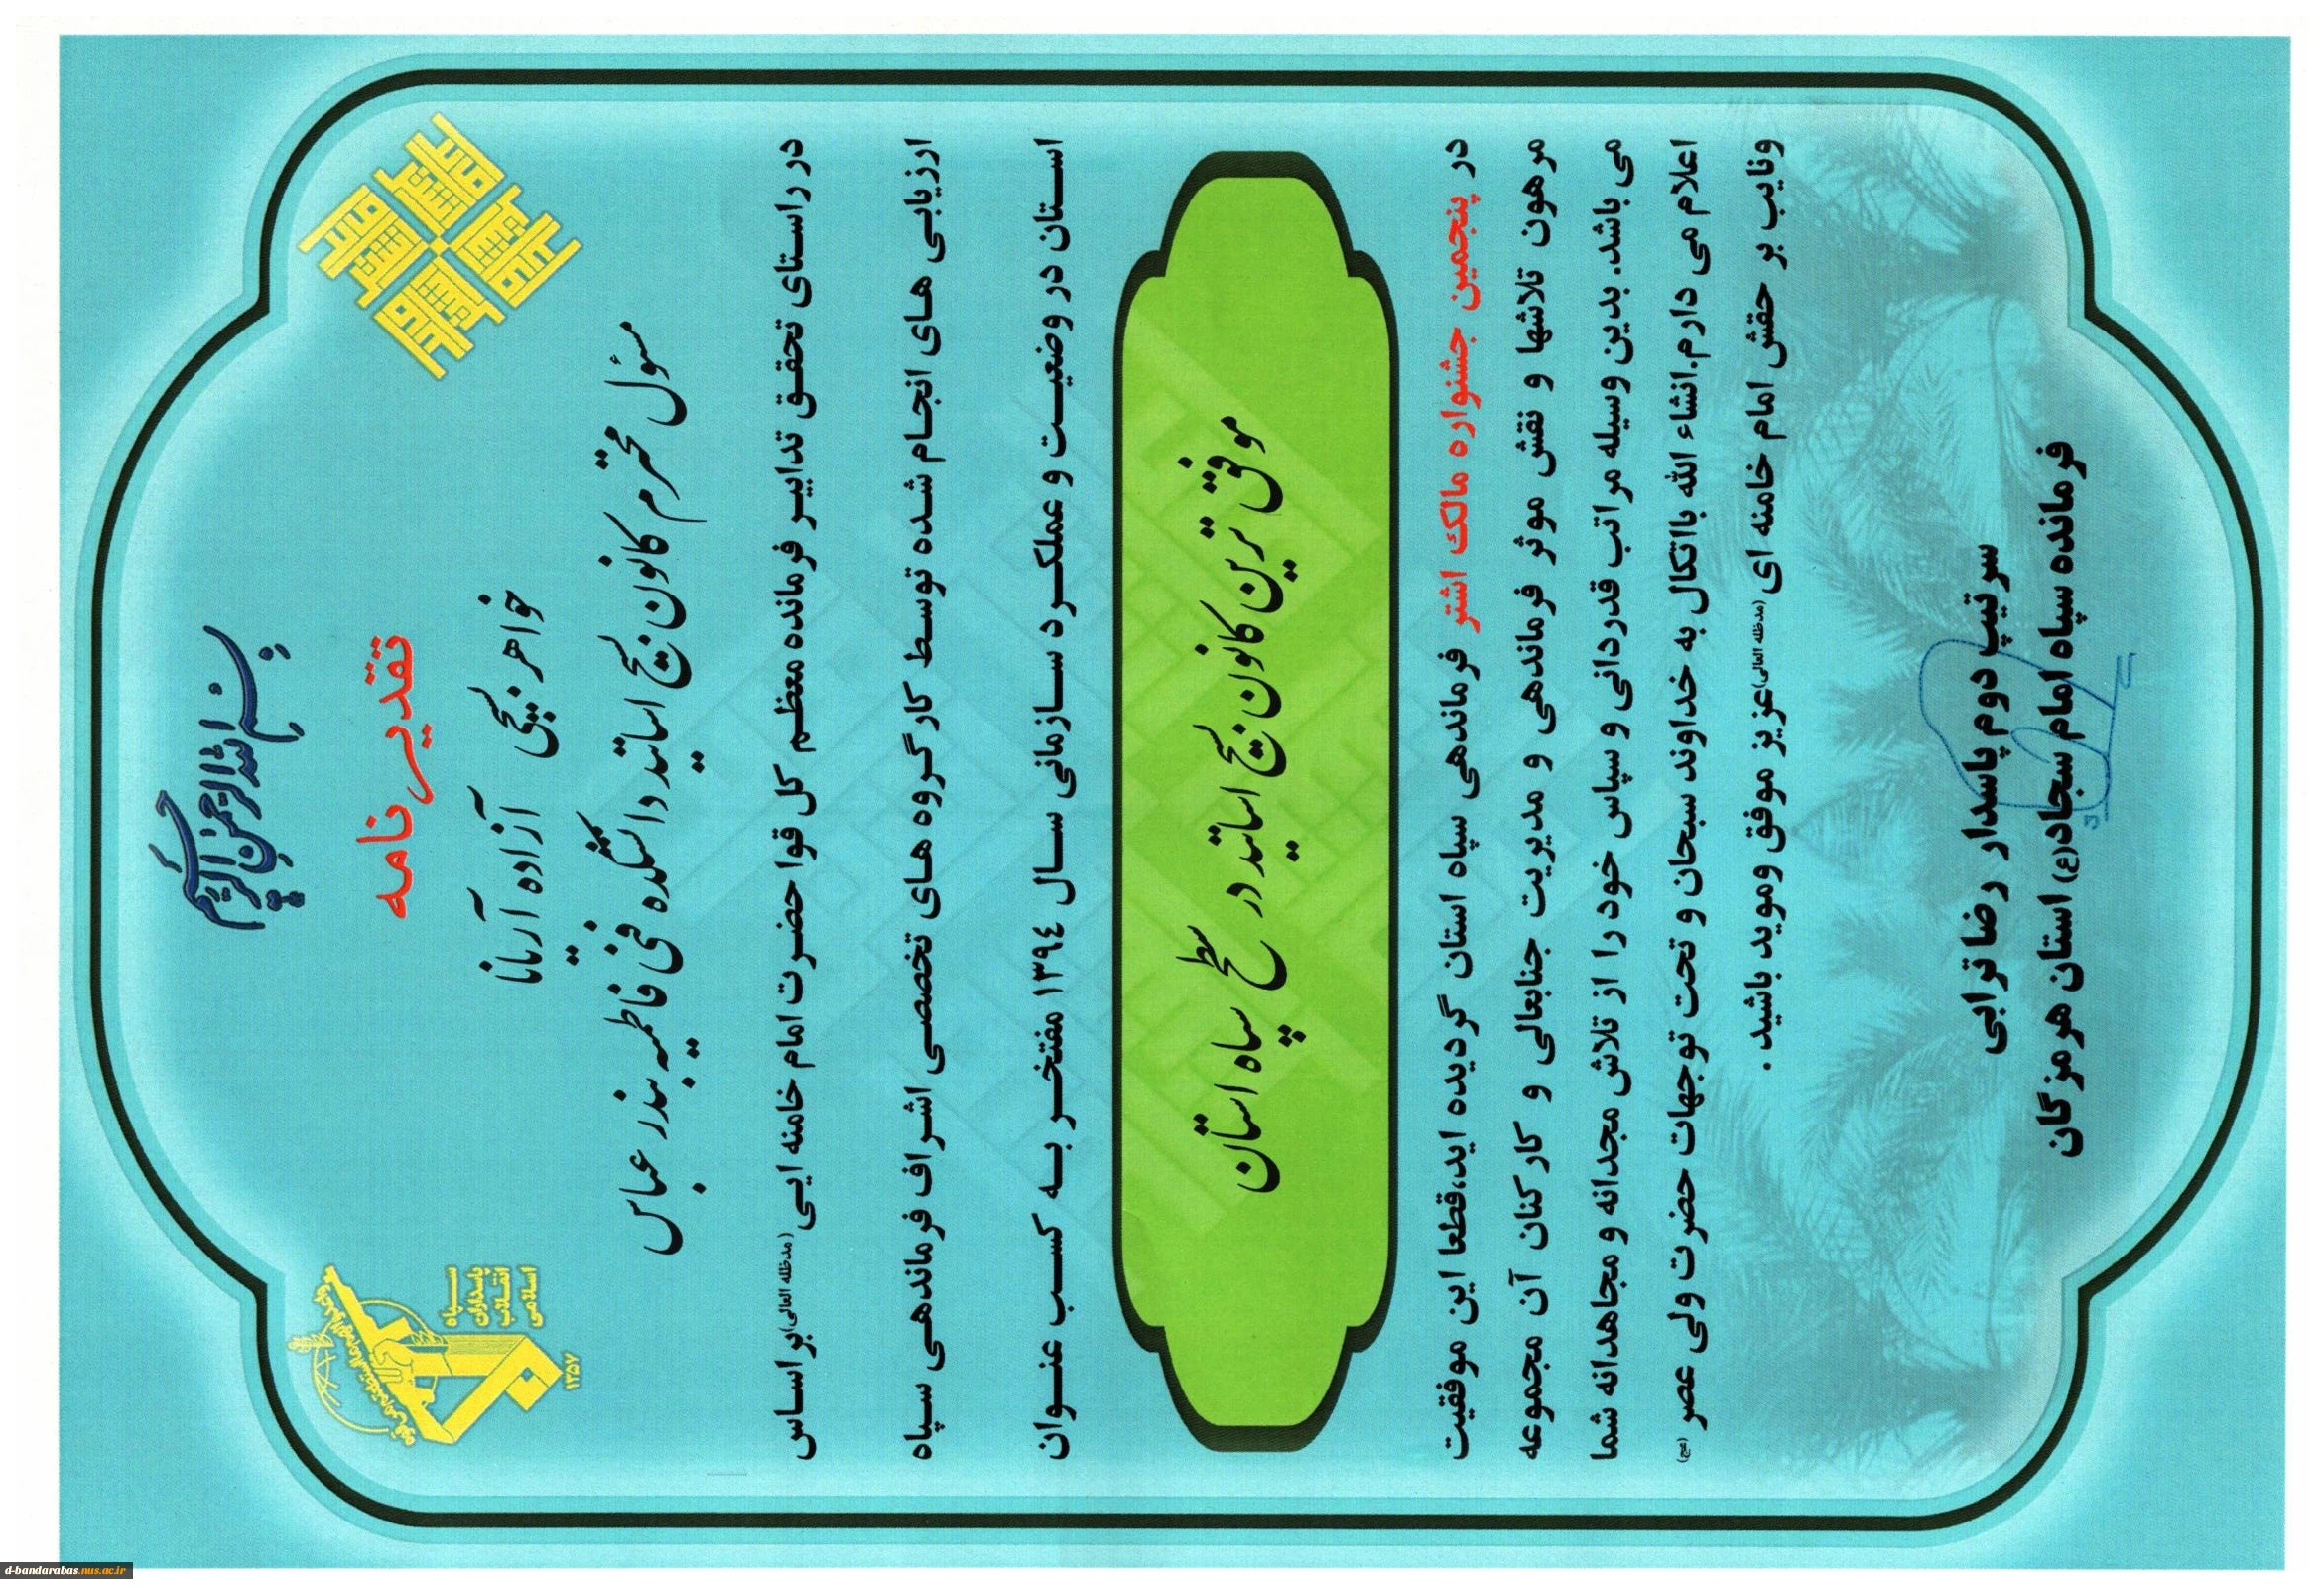 بسم الله الرحمن الرحیم
سپاه
پاسداران
انقلاب
اسلامی
۱۳۵۷
تقدیرنامه
خواهر بسیجی آزاده آریانا
مسئول محترم کانون بسیج اساتید دانشکده فنی فاطمیه بندرعباس
در راستای تحقق تدابیر فرمانده معظم کل قوا حضرت امام خامنه ایی (مدظله العالی) براساس
ارزیابی های انجام شده توسط کارگروه های تخصصی اشراف فرماندهی سپاه
استان در وضعیت و عملکرد سازمانی سال ۱۳۹٤ مفتخر به کسب عنوان
موفق ترین کانون بسیج اساتید در سطح سپاه استان
در پنجمین جشنواره مالک اشتر فرماندهی سپاه استان گردیده اید،قطعا این موفقیت
مرهون تلاشها و نقش موثر فرماندهی و مدیریت جنابعالی و کارکنان آن مجموعه
می باشد. بدین وسیله مراتب قدردانی و سپاس خود را از تلاش مجدانه و مجاهدانه شما
اعلام می دارم.انشاء الله بااتکال به خداوند سبحان و تحت توجهات حضرت ولی عصر (عج)
ونایب بر حقش امام خامنه ای (مدظله العالی)عزیز موفق وموید باشید .
سرتیپ دوم پاسدار رضا ترابی
فرمانده سپاه امام سجاد(ع) استان هرمزگان
d-bandarabas.nus.ac.ir